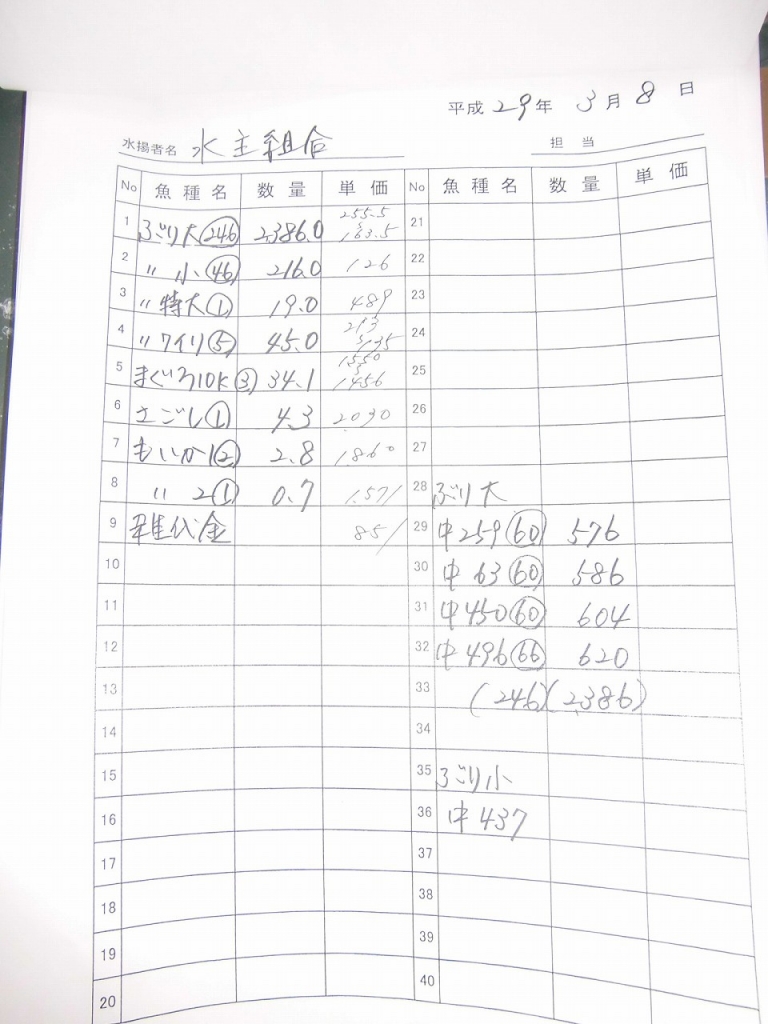 平成 29 年 3 月 8 日
水揚者名 水主組合 担当
No 魚種名 数量 単価 No 魚種名 数量 単価
1 ぶり大(246) 2,386.0 255.5 163.5 21
2 〃 小(46) 216.0 126 22
3 〃 特大(1) 19.0 489 23
4 〃 ワイリ(5) 45.0 213 24
5 まぐろ10K(3) 34.1 1550 1456 25
6 さごし(1) 4.3 2090 26
7 もいか1(2) 2.8 1.860 27
8 〃 2(1) 0.7 1.571 28 ぶり大
9 雑代金 851 29 中259(60) 576
10 30 中 63(60) 586
11 31 中450(60) 604
12 32 中496(66) 620
13 33 (246)(2,386)
14 34
15 35 ぶり小
16 36 中437
17 37
18 38
19 39
20 40